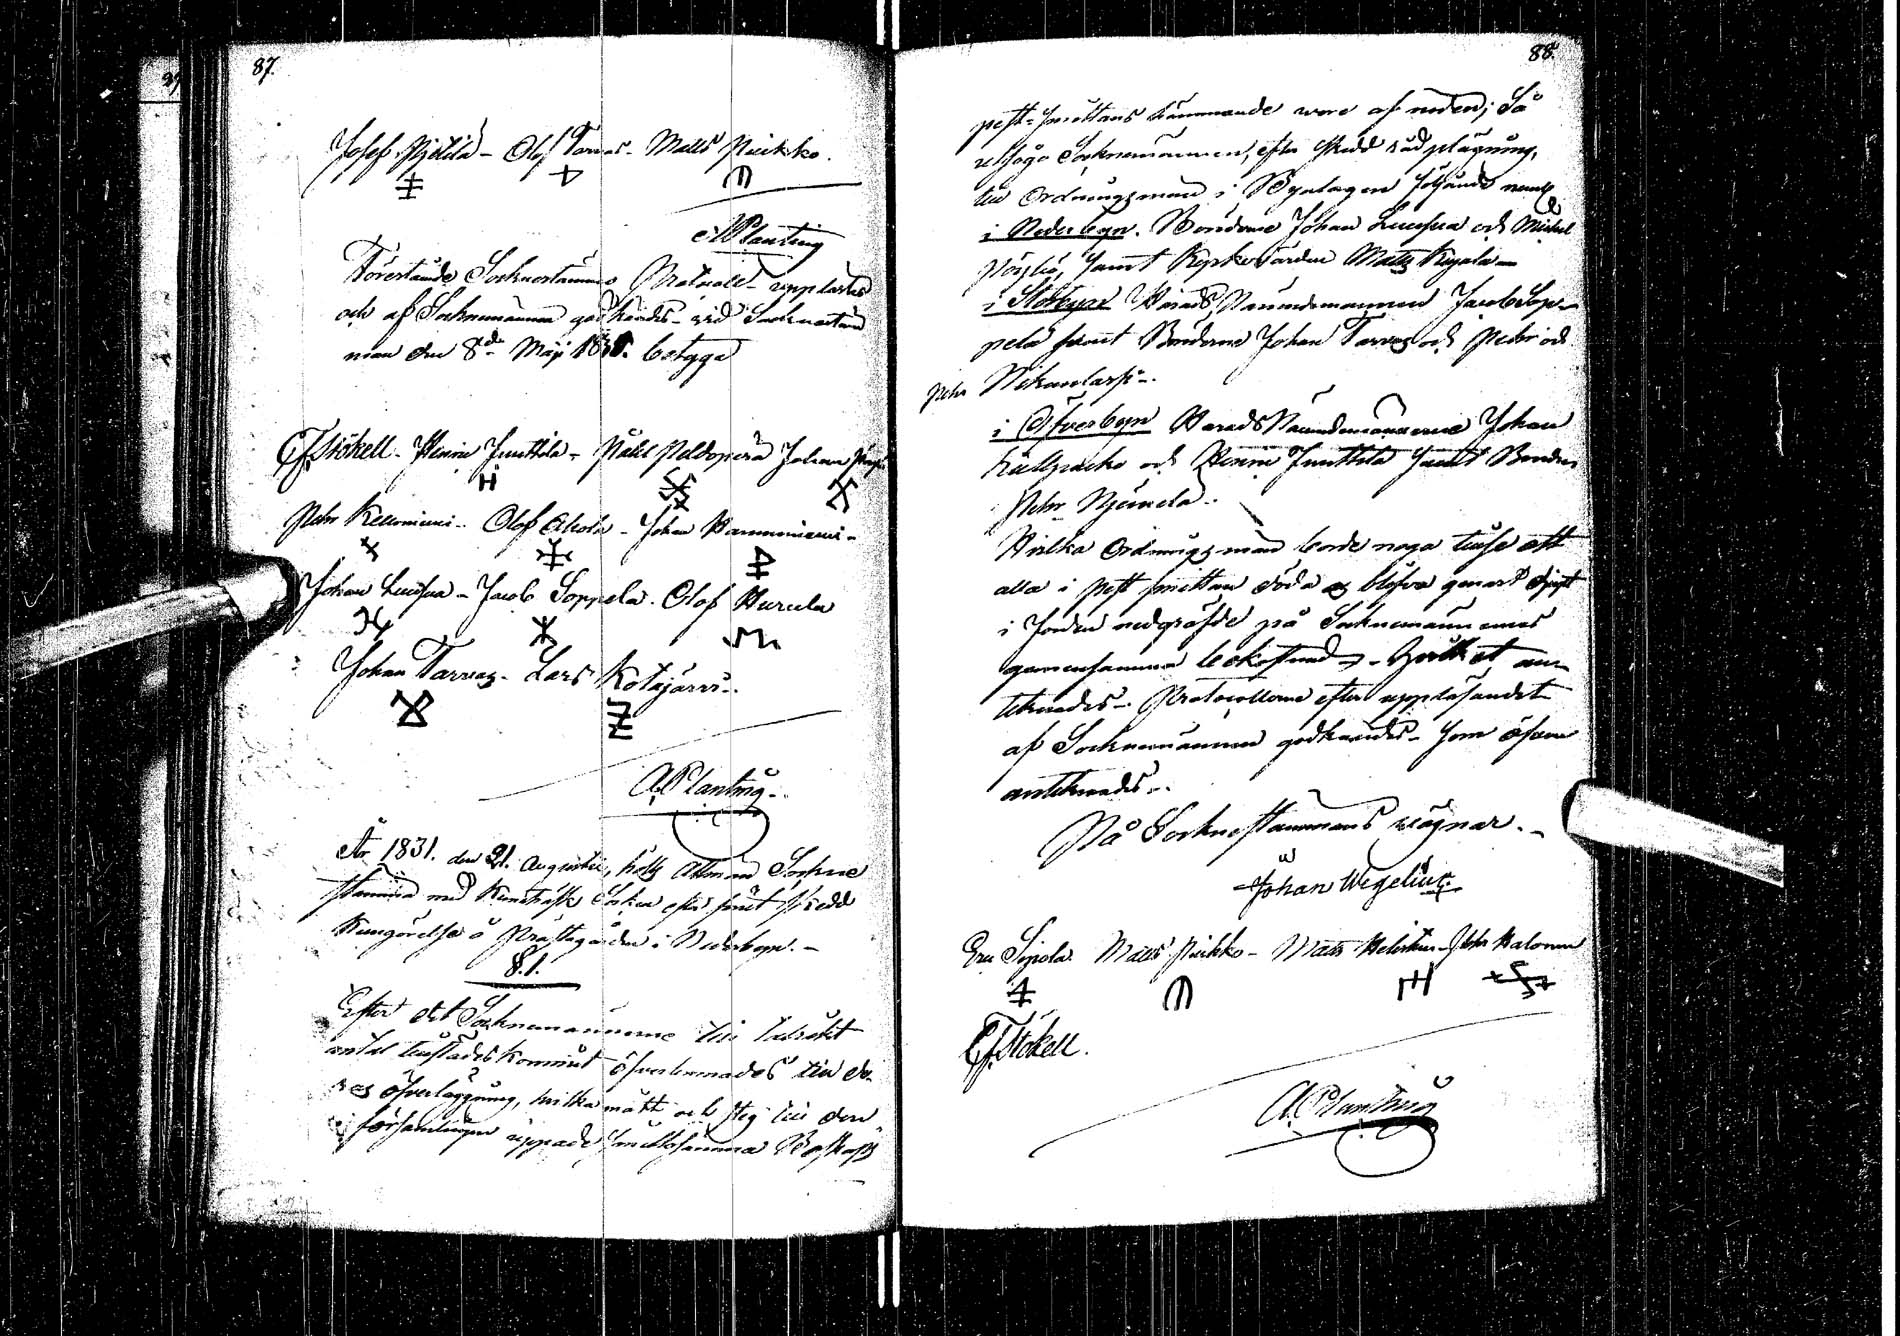 87.
Josef Pietilä - Olof Tarvas - Matts Pirikko.
A Planting
Förestående Socknestämmo Protocoll upplästes
och af Sockenmännen godkändes vid Sockenstäm
man den 8de Maji betyga
C. J. Stökell - Henric Junttila - Påhl Peldoperä Johan
Pehr Kelloniemi - Olof Ahola - Johan
Johan Luusua - Jacob Soppela. Olof Hurula
Johan Tarvas - Lars Kotajärvi -
A. Planting.
År 1831. den 21. Augusti, hölts Allmän Sockne
stämma med Kemiträsk Socken efter förut skedd
Kungörelse å Prästegården i Nederbyn. -
§.1.
Efter det Socknemännerne till talrikt
antal tillstädes kommit öfverlemnades till de-
res öfverläggning, hvilka mått och steg till den
i församlingen uppade Boskaps
88.
pest-smittans hämmande wore af nöden; Så
utsågo Socknemännen, efter skedd rådplägning,
till Ordningsmän i Byalagen följande neml
i Nederbyn. Bönderne Johan Luusua och Michel
Pöyliö, samt Kyrkovärden Matts Kejala -
i Storbyn Härads Nämndemannen Jacob Sop-
pela samt Bönderne Johan Tarvas och Pehr och
Pehr Nikanlassi -.
i Öfverbyn Härads Nämndemännerne Johan
och Henric Junttila samt Bonden
Pehr
Hvilka Ordningsmän borde noga tillse att
alla i pest smittan döda blefvo genast djupt
i Jorden nedgräfde på Socknemännernes
gemensamma bekostnad - Hvilket an-
teknades - Protocollerne efter uppläsandet
af Socknemännen godkändes - som äfven
anteknades -.
På Sockne Stämmans vägnar. -
Johan Wegelius.
Eric Sipola. Matts Pirikko - Matts - Pehr Halonen
C. J. Stökell.
A. Planting